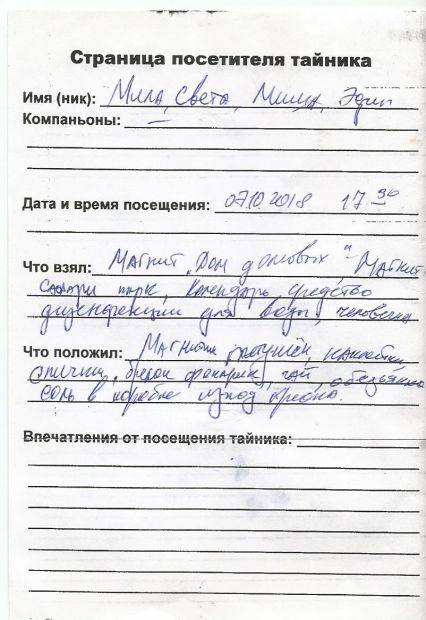 Страница посетителя тайника
Имя (ник): Мила, Света, Миша, Эдик
Компаньоны: —
Дата и время посещения: 07.10.2018 17 30
Что взял: Магнит „Дом домовых", Магнит
сафари парк, календарь, средство
дизенфекции для воды, человечка
Что положил: Магнитик, наклейки,
спички, брелок фонарик, чай, обезьянка
соль в коробке из под
Впечатления от посещения тайника: